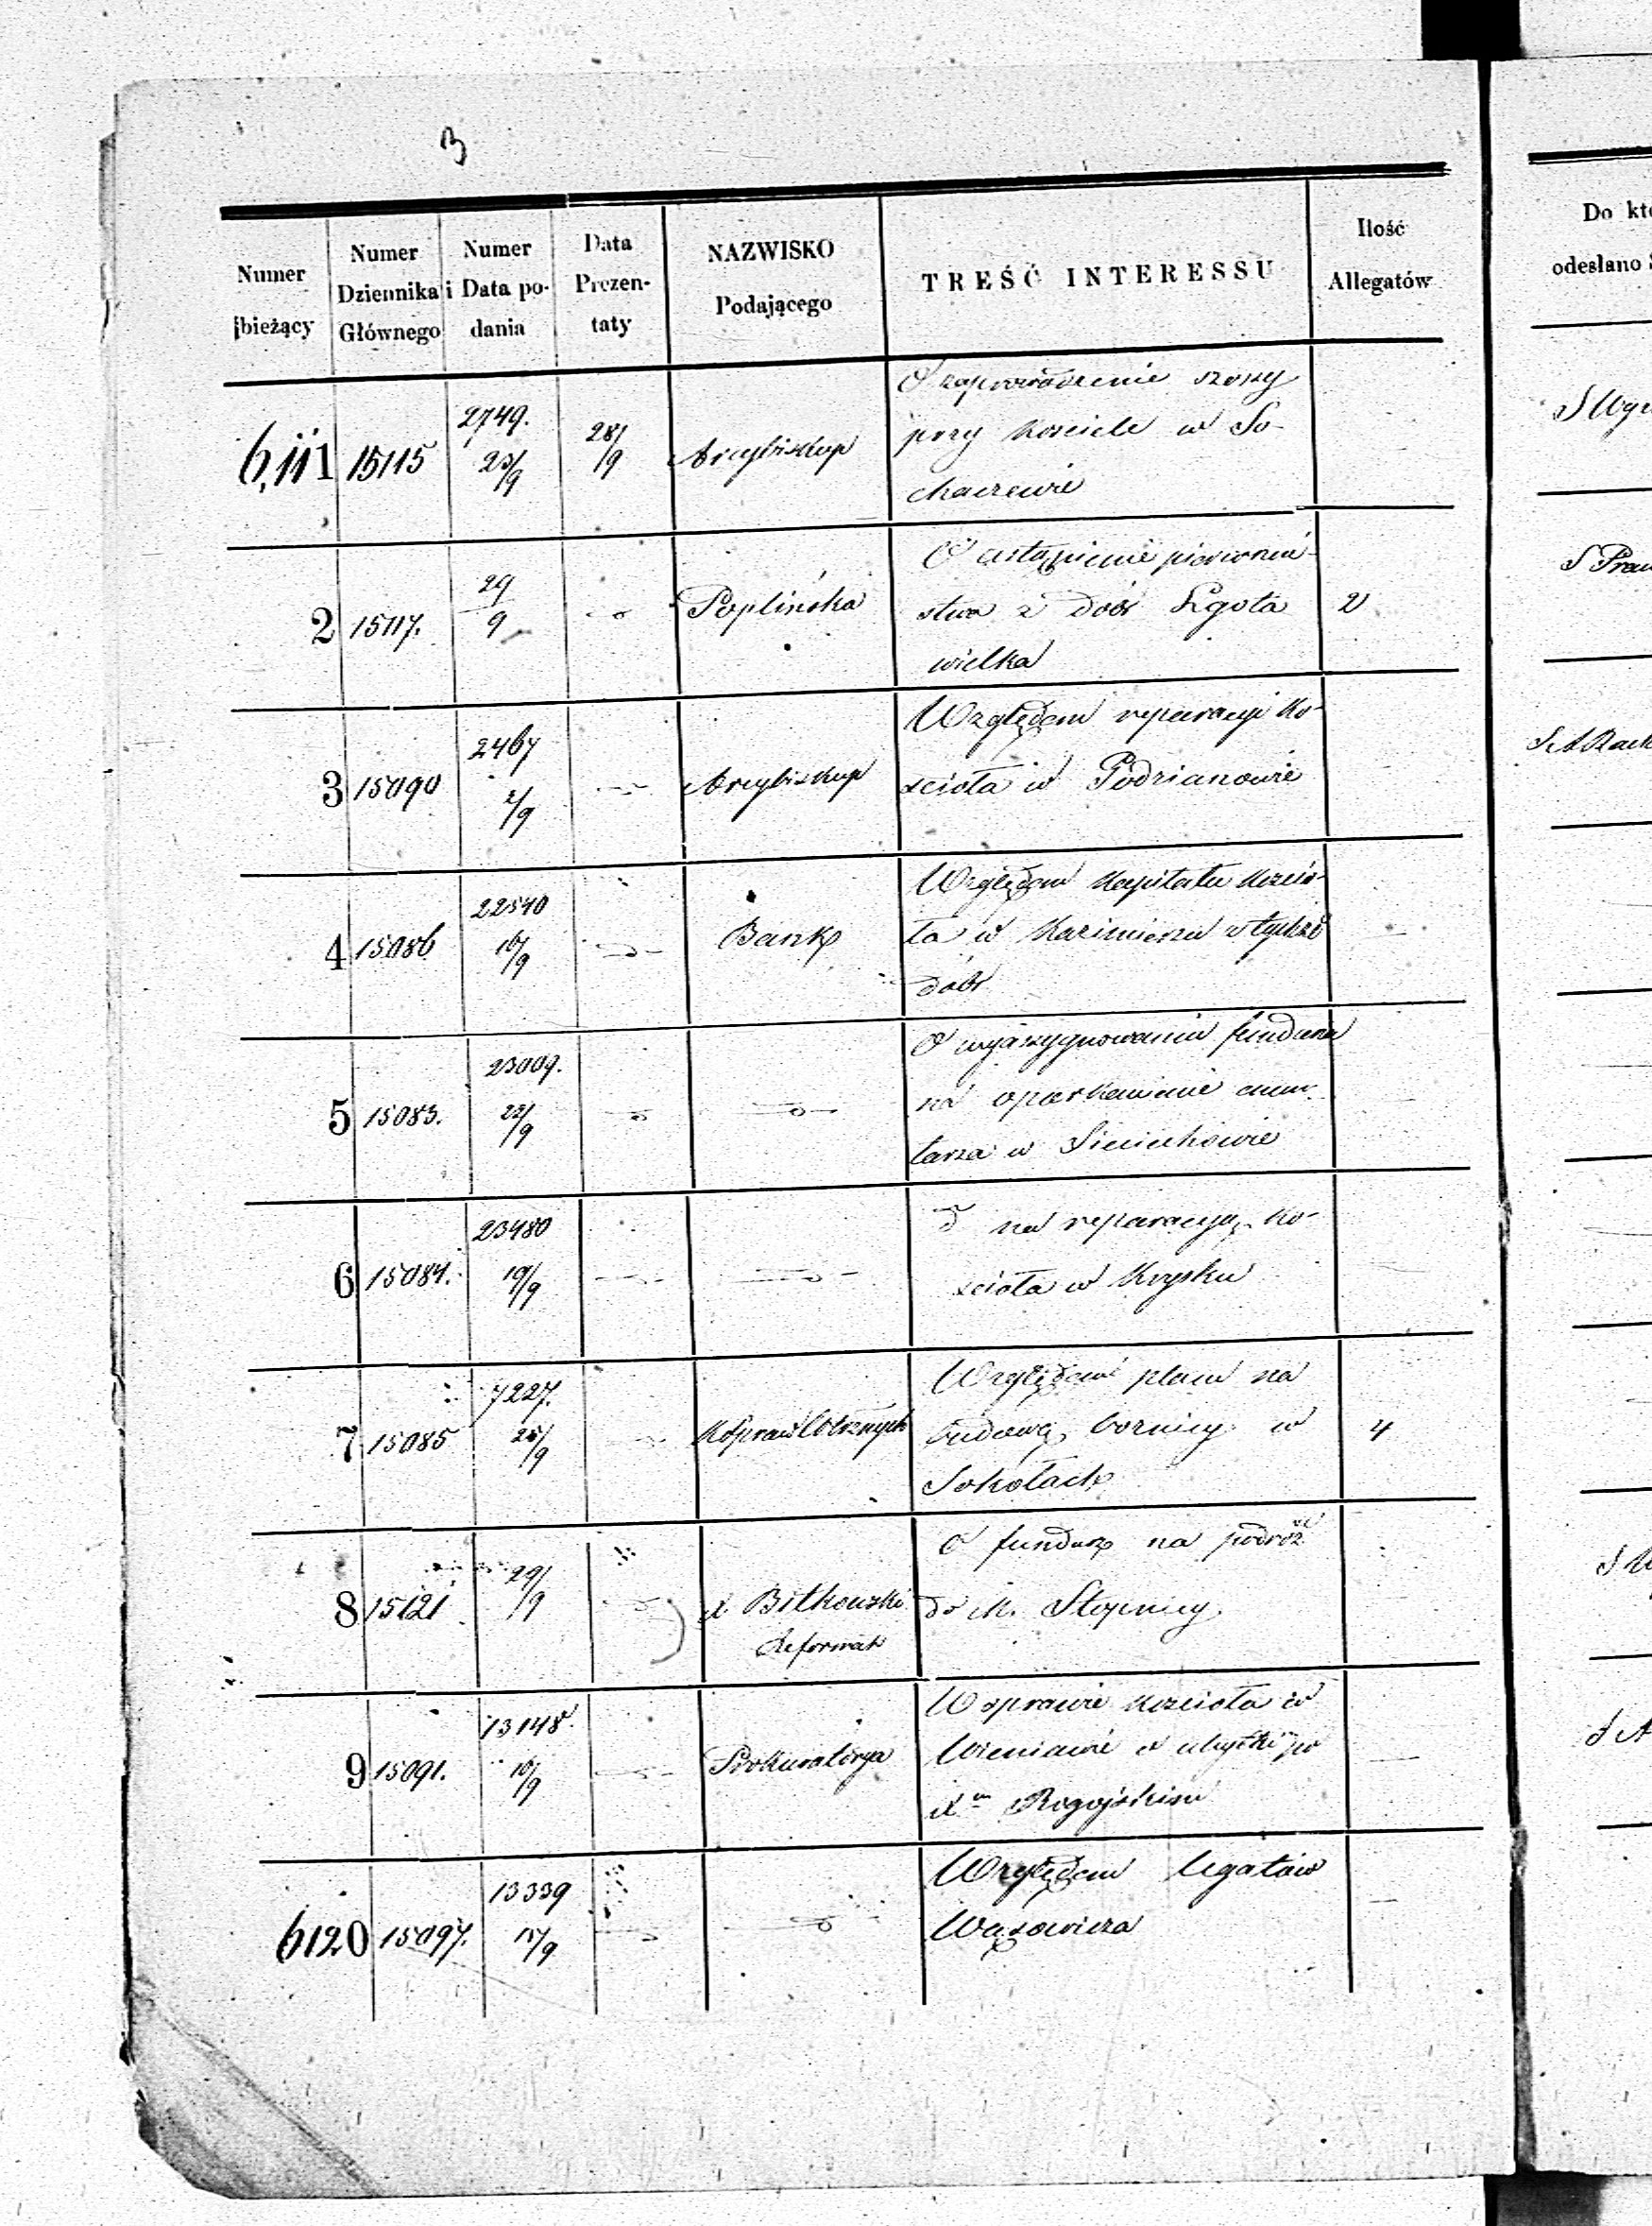 3
Numer bieżący
Numer Dziennika Głównego
Numer i Data podania
Data Prezentaty
NAZWISKO Podającego
TREŚĆ INTERESSU
Ilość Allegatów
Do kt
odesłano
6,111 15115 2749. 23/9 28/9 Arcybiskup O zaprowadzenie szosy
przy kościele w So-
chaczewie
2 15117. 29/9 Poplińska O ustąpienie pierwszeń-
stwa z dóbr Lgota 2
wielka
3 15090 2467 2/9 Arcybiskup Względem reparacyi Ko-
scioła w
4 15086 22540 16/9 Bank Względem Kapitału Kościo-
ła w Kazimierzu z tychże
dóbr
5 15083. 23009. 22/9 O wyassygnowaniu
na oparkanienie cmen-
tarza w Sieciechowie
6 15084. 23480 19/9 na reparacyą Ko-
scioła w Krysku
7 15085 7227. Względem placu na
budowę bożnicy w 4
Sokołach
8 15121 29/9 X. Bitkowski O fundusz na podróż
Reformat do M. Stopnicy
9 15091. 13148. 10/9 Prokuratorya W sprawie Kościoła w
Wieniawie o po
Xu Rogojskim
6120 15097. 13339 15/9 Względem legatów
Wąsowicza